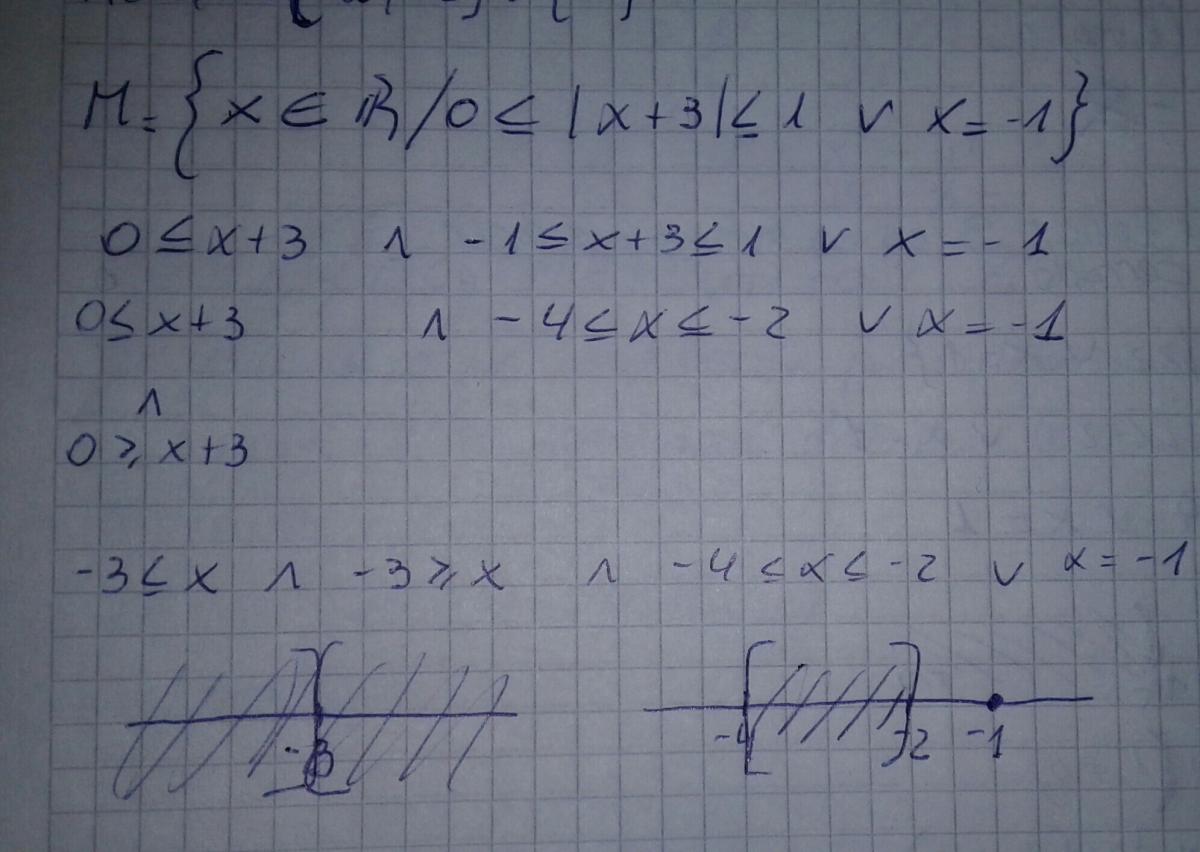 M = { x ∈ ℝ / 0 ≤ |x + 3| ≤ 1 ∨ x = -1 }
0 ≤ x + 3 ∧ -1 ≤ x + 3 ≤ 1 ∨ x = -1
0 ≤ x + 3 ∧ -4 ≤ x ≤ -2 ∨ x = -1
∧
0 ≥ x + 3
-3 ≤ x ∧ -3 ≥ x ∧ -4 ≤ x ≤ -2 ∨ x = -1
-3 -4 -2 -1